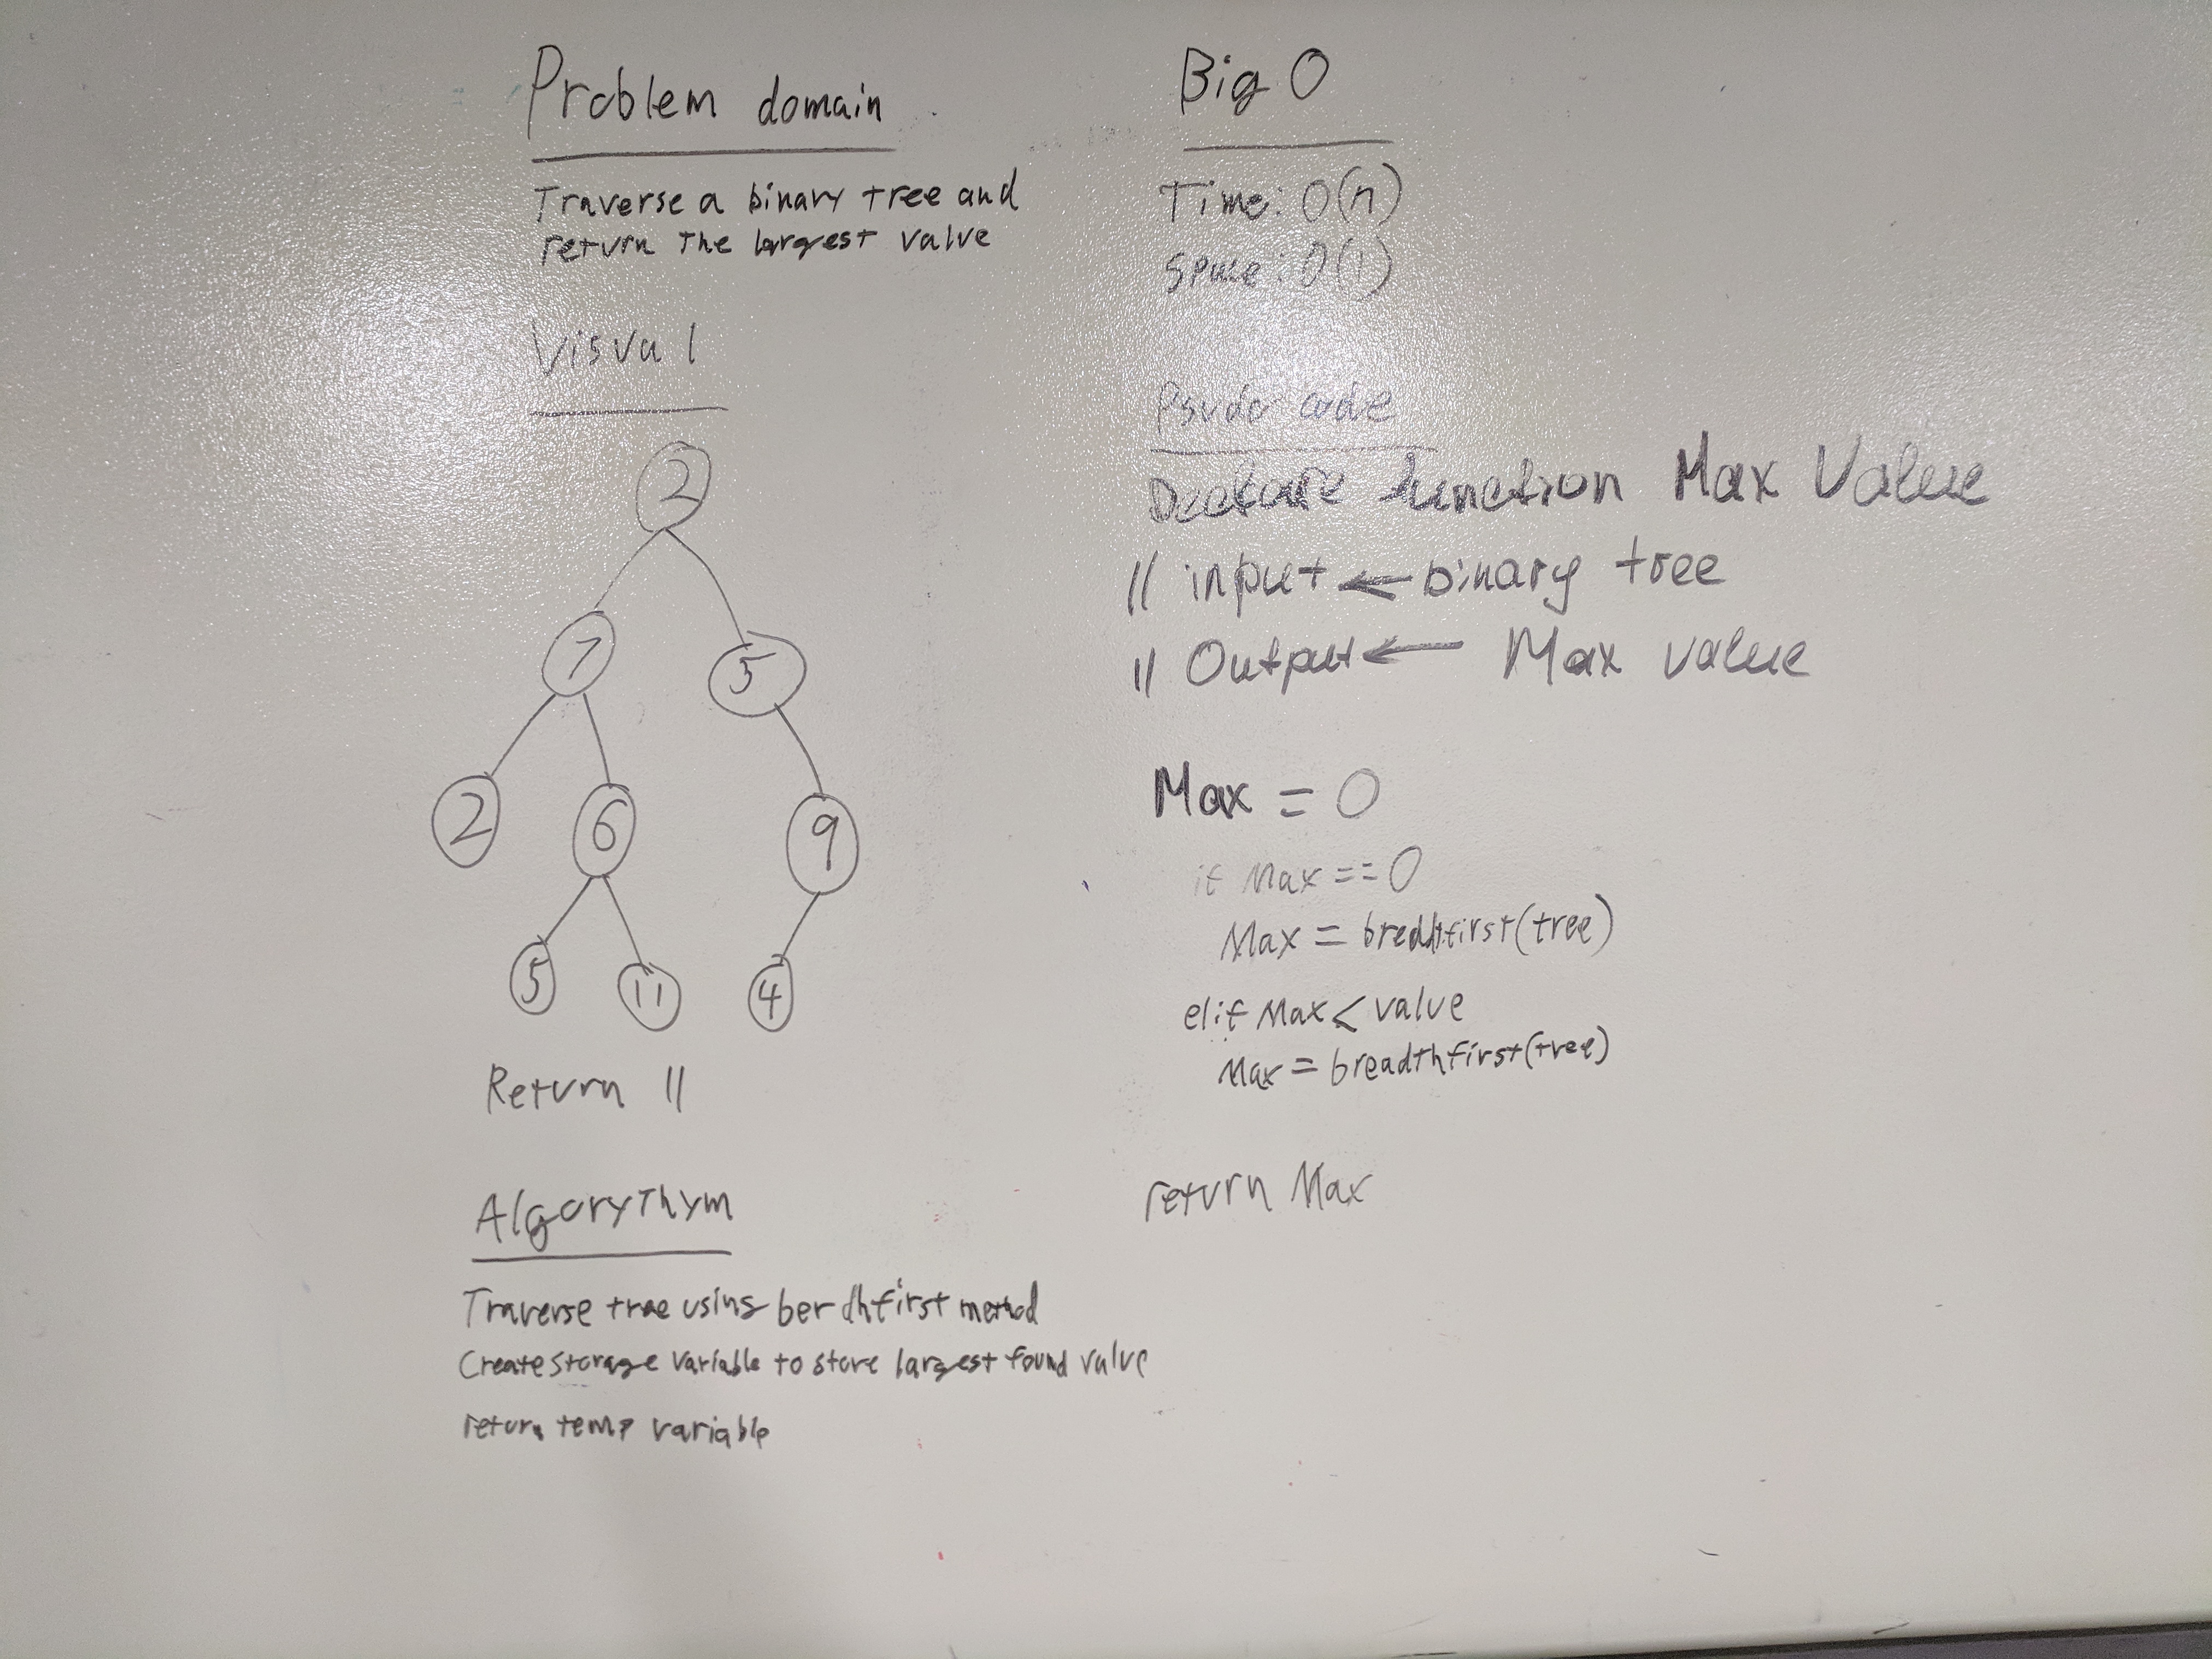 Problem domain
Traverse a binary tree and
return the largest value
Visual
2
7
5
2
6
9
5
11
4
Return 11
Algorythym
Traverse tree using berdhfirst method
Create storage variable to store largest found value
return temp variable
Big O
Time: O(n)
Space: O(1)
Psudo code
Declare function Max Value
// input ← binary tree
// Output ← Max value
Max = 0
if Max == 0
Max = bredthfirst(tree)
elif Max < value
Max = breadthfirst(tree)
return Max